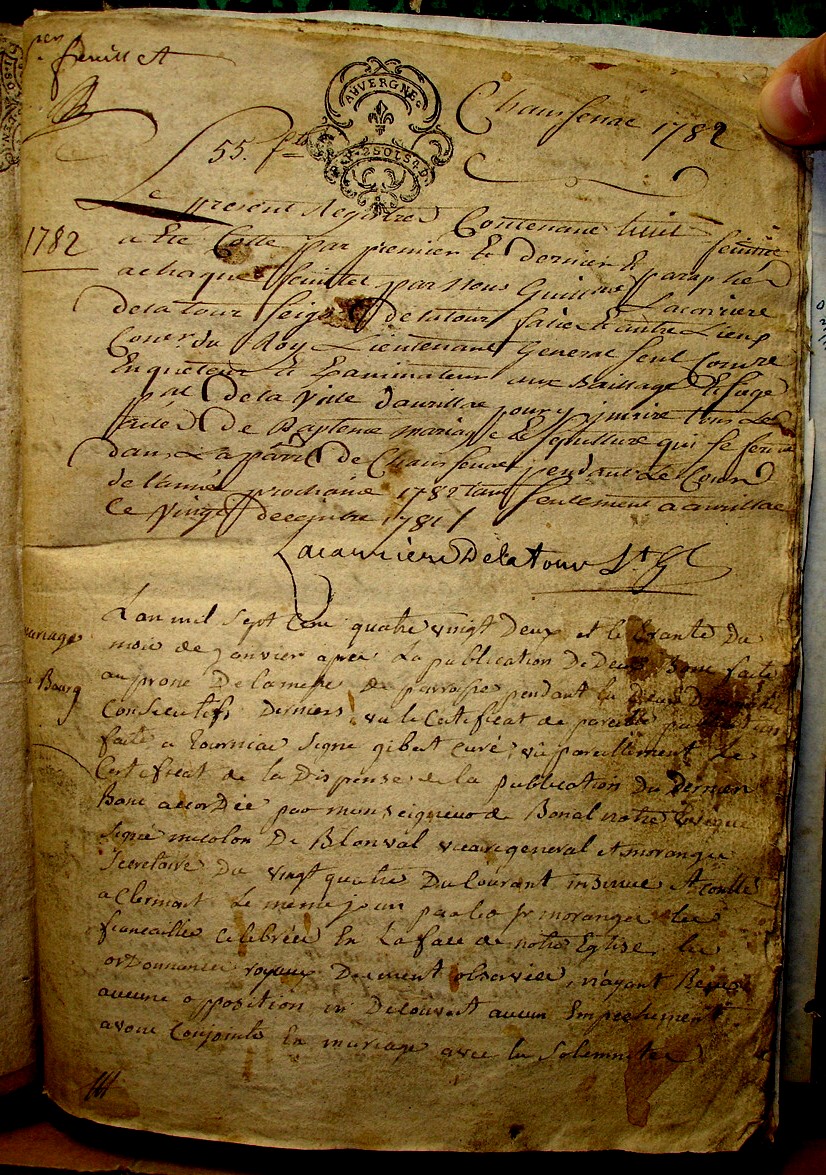 per feuillet
AUVERGNE
2 SOLS
Chaussenac 1782
55. f.ts
1782
Le present Registre Contenant huit feuillets
a Eté Cotté par premier Et dernier Et paraphé
a chaque feuillet par Nous Guillme Lacarriere
delatour seigr de latour falies Et autre Lieux
Coner du Roy Lieutenant General seul Comre
Enqueteur Et Examinateur aux Bailliage
de la Ville daurillac pour y inscrire tous Les
actes De Baptemes mariages Et sepulture qui se feront
dans La parse De Chaussenac pendant Le Cours
de lannée prochaine 1782 tant seulement a aurillac
Ce Vingt decembre 1781 /
Lacarriere Delatour Lt Gl
mariage
Bourg
Lan mil sept Cent quatre vingt Deux et le trante Du
mois de janvier après La publication De Deux Banc faite
au prone De la messe de parroisse pendant les Deux Dimanches
Consecutifs Derniers, vu le Certificat de pareille publication
faite a Tourniac signé gibert curé, vu pareillement Le
Certificat de la Dispense de la publication Du Dernier
Banc accordée par monseigneur de Bonal notre Eveque
signé micolon De Blanval vicaire general et moranges
secretaire Du vingt quatre Du Courant insinué et Controllé
a Clermont Le meme jour par le sr moranges les
fiancailles Celebrées En La face de notre Eglise les
ordonnances royaux Duement observées, n'ayant Reçu
aucune opposition ni Decouvert aucun Empechement
avons Conjoints En mariage avec les solemnites